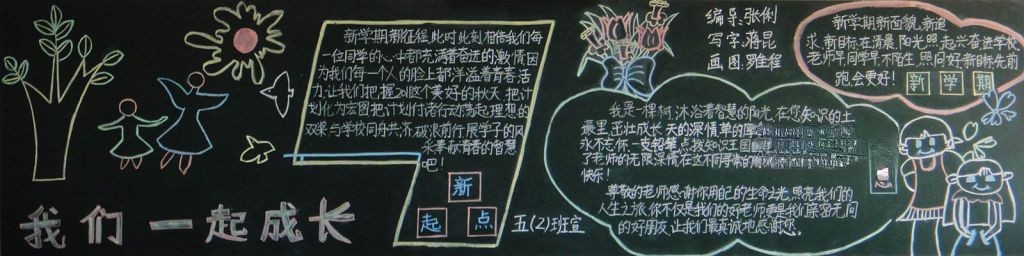 新学期新征程,此时此刻,相信我们每
一位同学的心中都充满着奋进的激情因
为我们每一个人的脸上都洋溢着青春活
力,让我们把握2011这个美好的秋天,把计
划化为宏图把计划付诸行动荡起理想的
双桨与学校同舟共济,破浪前行展学子的风
采奉献青春的智慧
吧!
新
起 点
我们一起成长
五(2)班宣
编导:张俐
写字:蒋昆
画图:罗维
新学期新面貌,新追
求,新目标在清晨,阳光照,起兴奋进学校
老师早同学早,不陌生,照问好新目标先前
跑,会更好!
新 学 期
我是一棵树,沐浴着智慧的阳光,在您知识的土
壤里,茁壮成长,天的深情,草的
永不忘怀,一支铅笔,点拨知识王国
了老师的无限深情,在这不寻常的
快乐!
尊敬的老师感谢你用自己的生命之光,照亮我们的
人生之旅,你不仅是我们的好老师更是我们亲密无间
的好朋友,让我们最真诚地感谢您。